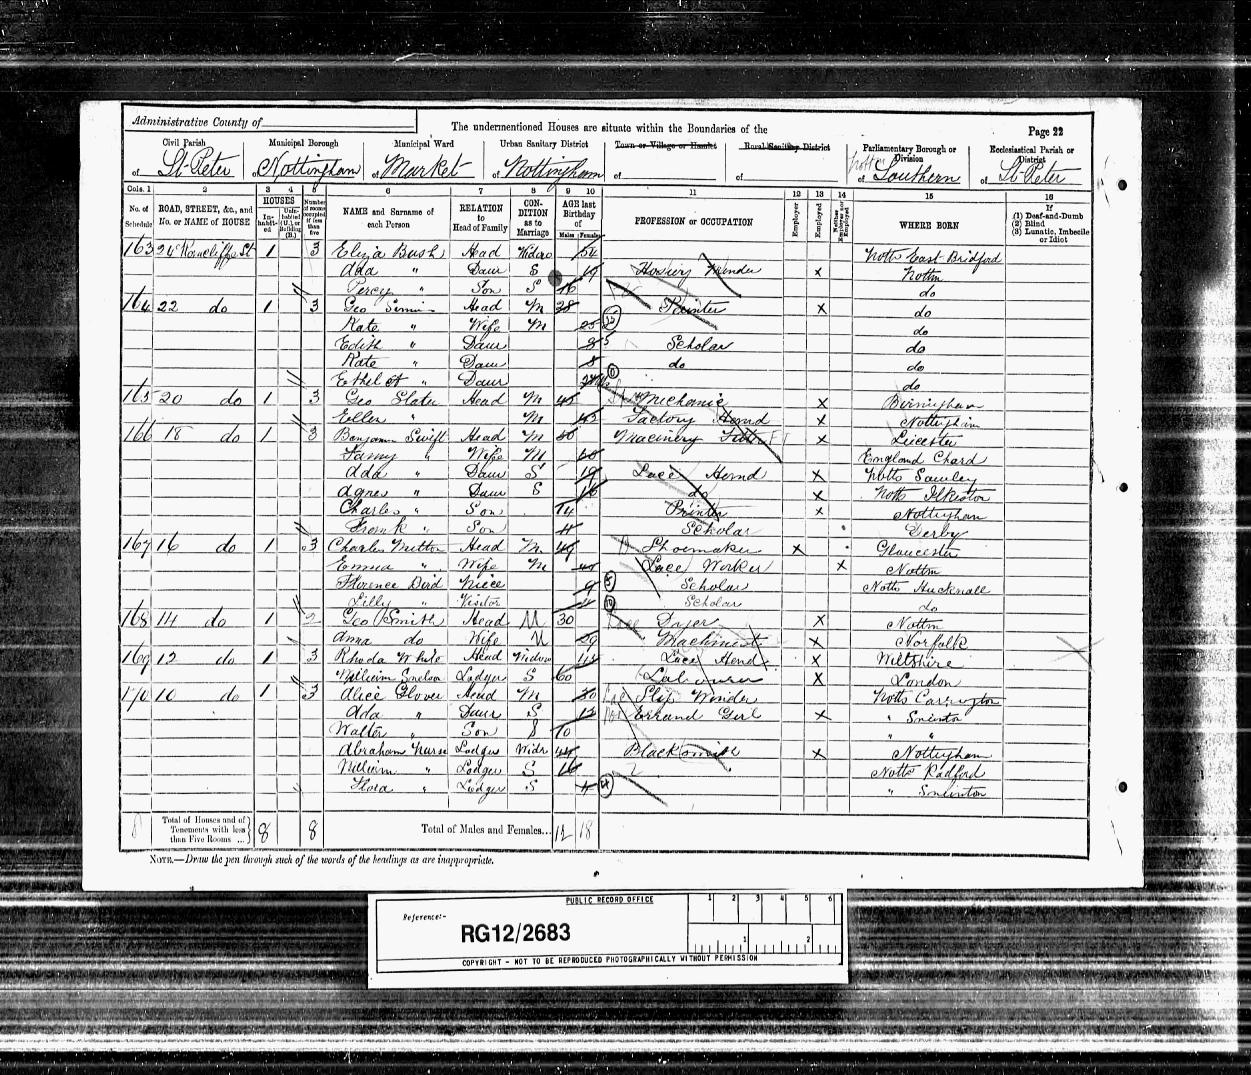 Administrative County of
The undermentioned Houses are situate within the Boundaries of the
Page 22
Civil Parish
of St. Peter
Municipal Borough
of Nottingham
Municipal Ward
of Market
Urban Sanitary District
of Nottingham
Town or Village or Hamlet
of
Rural Sanitary District
of
Parliamentary Borough or Division
of Southern
Ecclesiastical Parish or District
of St. Peter
Cols. 1 2 3 4 5 6 7 8 9 10 11 12 13 14 15 16
No. of Schedule
ROAD, STREET, &c., and No. or NAME of HOUSE
HOUSES
In-habit-ed
Unin-habited (U.) or Building (B.)
Number of rooms occupied if less than five
NAME and Surname of each Person
RELATION to Head of Family
CON-DITION as to Marriage
AGE last Birthday of
Males Females
PROFESSION or OCCUPATION
Employer
Employed
Neither Employer nor Employed
WHERE BORN
If
(1) Deaf-and-Dumb
(2) Blind
(3) Lunatic, Imbecile or Idiot
163 24 St 1 3 Eliza Bush Head Widow 54 Notts East Bridford
Ada " Daur S 19 Hosiery Mender X Nottm
Percy " Son S 16 do
164 22 do 1 3 Geo Head M 28 X do
Kate " Wife M 25 do
Edith " Daur Scholar do
Kate " Daur do do
Ethel " Daur do
165 20 do 1 3 Geo Slater Head M 42 Mechanic X Birmingham
Ellen " M 42 Factory Hand X Nottingham
166 18 do 1 3 Benjamin Swift Head M 50 Machinery X Leicester
Fanny " Wife M England Chard
Ada " Daur S 19 Lace Hand X Notts Sawley
Agnes " Daur S 16 do X Notts Ilkeston
Charles " Son 14 Printer X Nottingham
Frank " Son 11 Scholar Derby
167 16 do 1 3 Charles Mutton Head M 49 Shoemaker X Gloucester
Emma " Wife M Lace Worker X Nottm
Florence Bird Niece 9 Scholar Notts Hucknall
Lilly " Visitor Scholar do
168 14 do 1 2 Geo Smith Head M 30 Dyer X Nottm
Anna do Wife M 29 Machinist X Norfolk
169 12 do 1 3 Rhoda White Head Widow Lace Hand X Wiltshire
William Snelson Lodger S 60 Labourer X London
170 10 do 1 3 Alice Glover Head M 30 Slip Winder Notts Carrington
Ada " Daur S 13 Errand Girl X " Sneinton
Walter " Son S 10 " "
Abraham Lodger Widr 44 Blacksmith X Nottingham
William " Lodger S 16 Notts Radford
Flora " Lodger S " Sneinton
Total of Houses and of Tenements with less than Five Rooms ... 8 8 Total of Males and Females... 12 18
NOTE.—Draw the pen through such of the words of the headings as are inappropriate.
PUBLIC RECORD OFFICE
1 2 3 4 5 6
Reference:-
RG12/2683
1 2
COPYRIGHT - NOT TO BE REPRODUCED PHOTOGRAPHICALLY WITHOUT PERMISSION